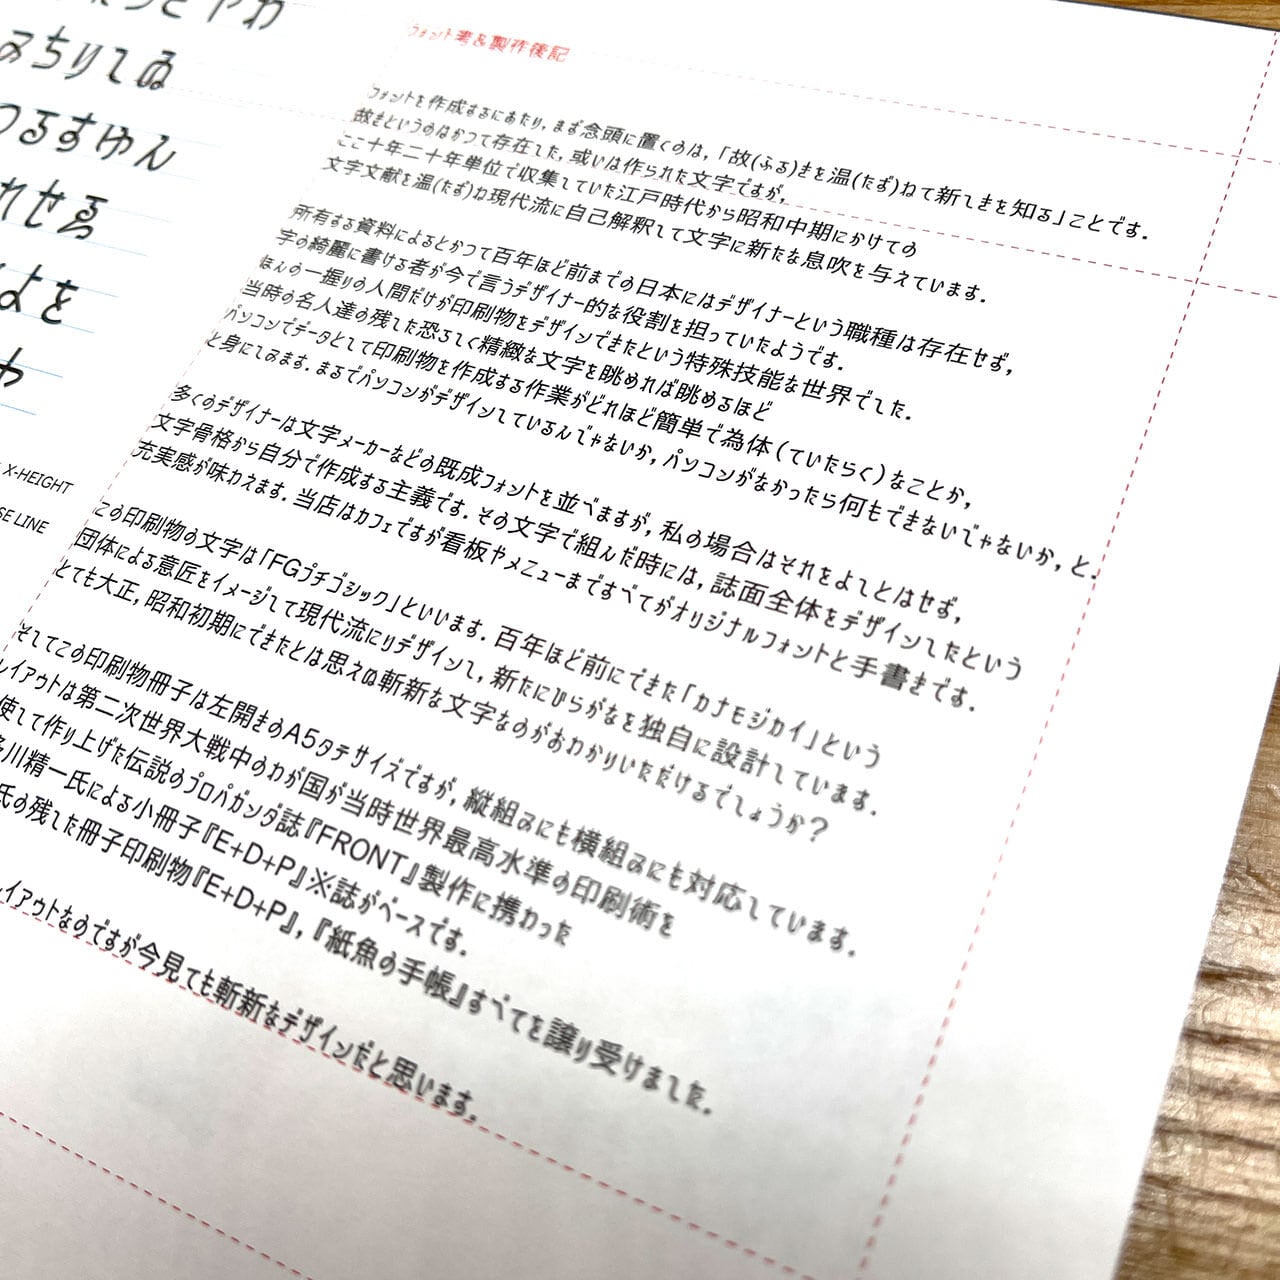 みちりしゐ
つるすゆん
れせゑ
よを
わ
X-HEIGHT
SE LINE
フォント考&製作後記
フォントを作成するにあたり,まず念頭に置くのは,「故(ふる)きを温(たず)ねて新しきを知る」ことです.
故きというのはかつて存在した,或いは作られた文字ですが,
ここ十年二十年単位で収集していた江戸時代から昭和中期にかけての
文字文献を温(たず)ね現代流に自己解釈して文字に新たな息吹を与えています.
所有する資料によるとかつて百年ほど前までの日本にはデザイナーという職種は存在せず,
字の綺麗に書ける者が今で言うデザイナー的な役割を担っていたようです.
ほんの一握りの人間だけが印刷物をデザインできたという特殊技能な世界でした.
当時の名人達の残した恐ろしく精緻な文字を眺めれば眺めるほど
パソコンでデータとして印刷物を作成する作業がどれほど簡単で為体(ていたらく)なことか,
と身にしみます.まるでパソコンがデザインしているんじゃないか,パソコンがなかったら何もできないじゃないか,と.
多くのデザイナーは文字メーカーなどの既成フォントを並べますが,私の場合はそれをよしとはせず,
文字骨格から自分で作成する主義です.その文字で組んだ時には,誌面全体をデザインしたという
充実感が味わえます.当店はカフェですが看板やメニューまですべてがオリジナルフォントと手書きです.
この印刷物の文字は「FGプチゴシック」といいます.百年ほど前にできた「カナモジカイ」という
団体による意匠をイメージして現代流にリデザインし,新たにひらがなを独自に設計しています.
とても大正,昭和初期にできたとは思えぬ斬新な文字なのがおわかりいただけるでしょうか?
そしてこの印刷物冊子は左開きのA5タテサイズですが,縦組みにも横組みにも対応しています.
レイアウトは第二次世界大戦中のわが国が当時世界最高水準の印刷術を
使して作り上げた伝説のプロパガンダ誌『FRONT』製作に携わった
多川精一氏による小冊子『E+D+P』※誌がベースです.
氏の残した冊子印刷物『E+D+P』,『紙魚の手帳』すべてを譲り受けました.
レイアウトなのですが今見ても斬新なデザインだと思います.